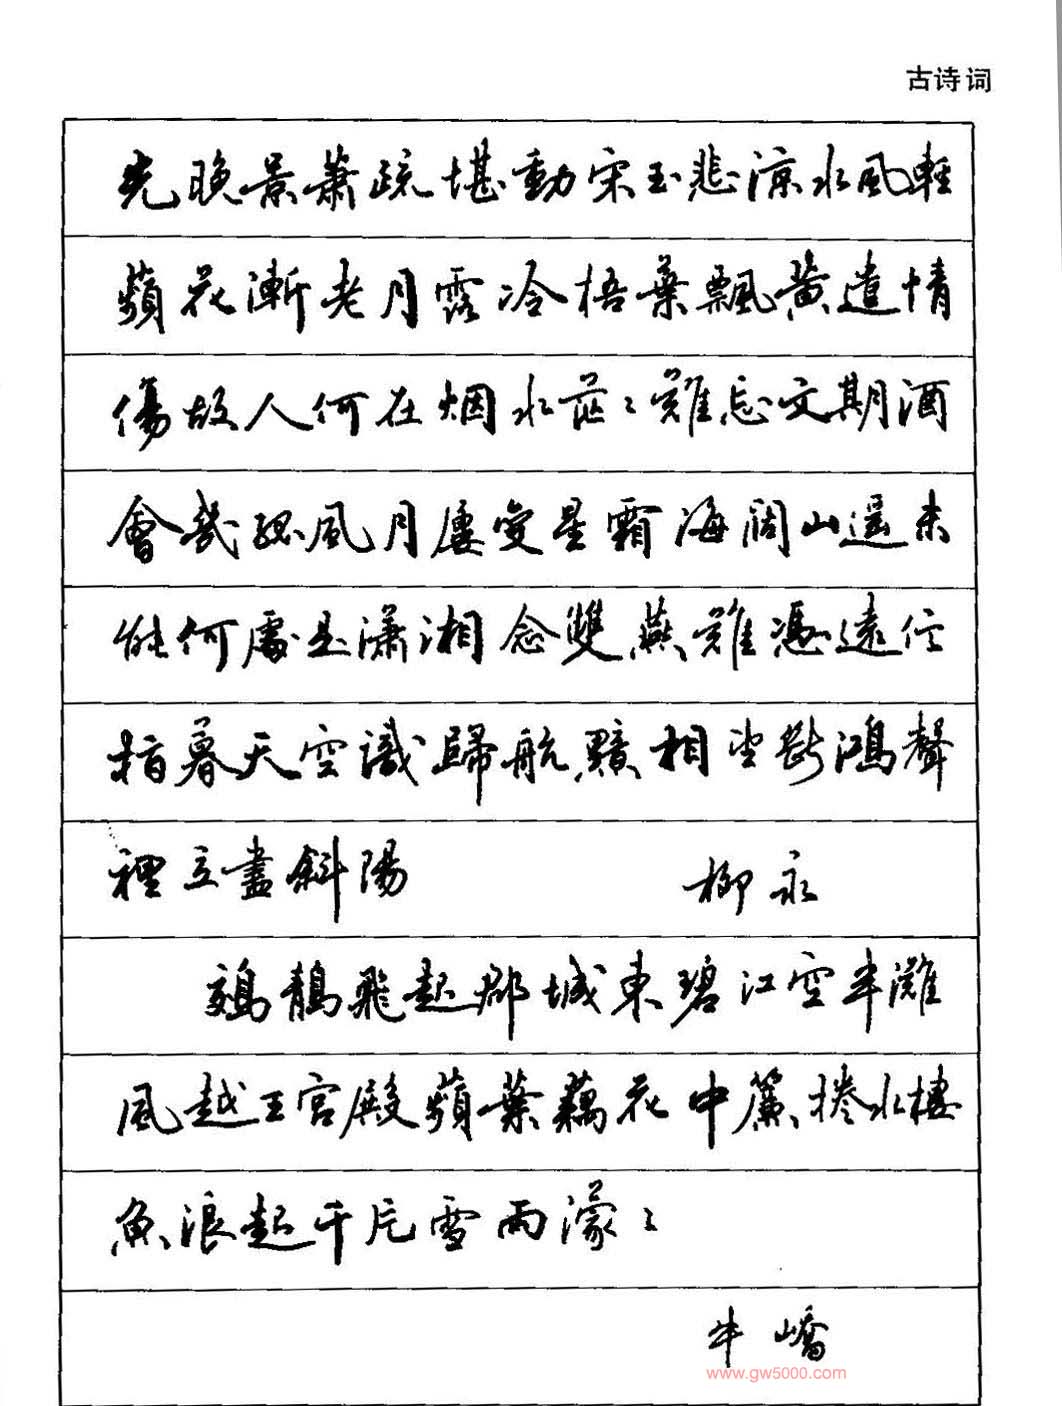 古诗词
光晚景蕭疏堪動宋玉悲涼水風輕
蘋花漸老月露冷梧葉飄黄遣情
傷故人何在烟水茫〻難忘文期酒
會幾孤風月屢變星霜海闊山遥未
知何處是瀟湘念雙燕難憑遠信
指暮天空識歸航黯相望斷鴻聲
裡立盡斜陽 柳永
鵁鶄飛起郡城東碧江空半灘
風越王宫殿蘋葉藕花中簾捲水樓
魚浪起千片雪雨濛〻
牛嶠
www.gw5000.com